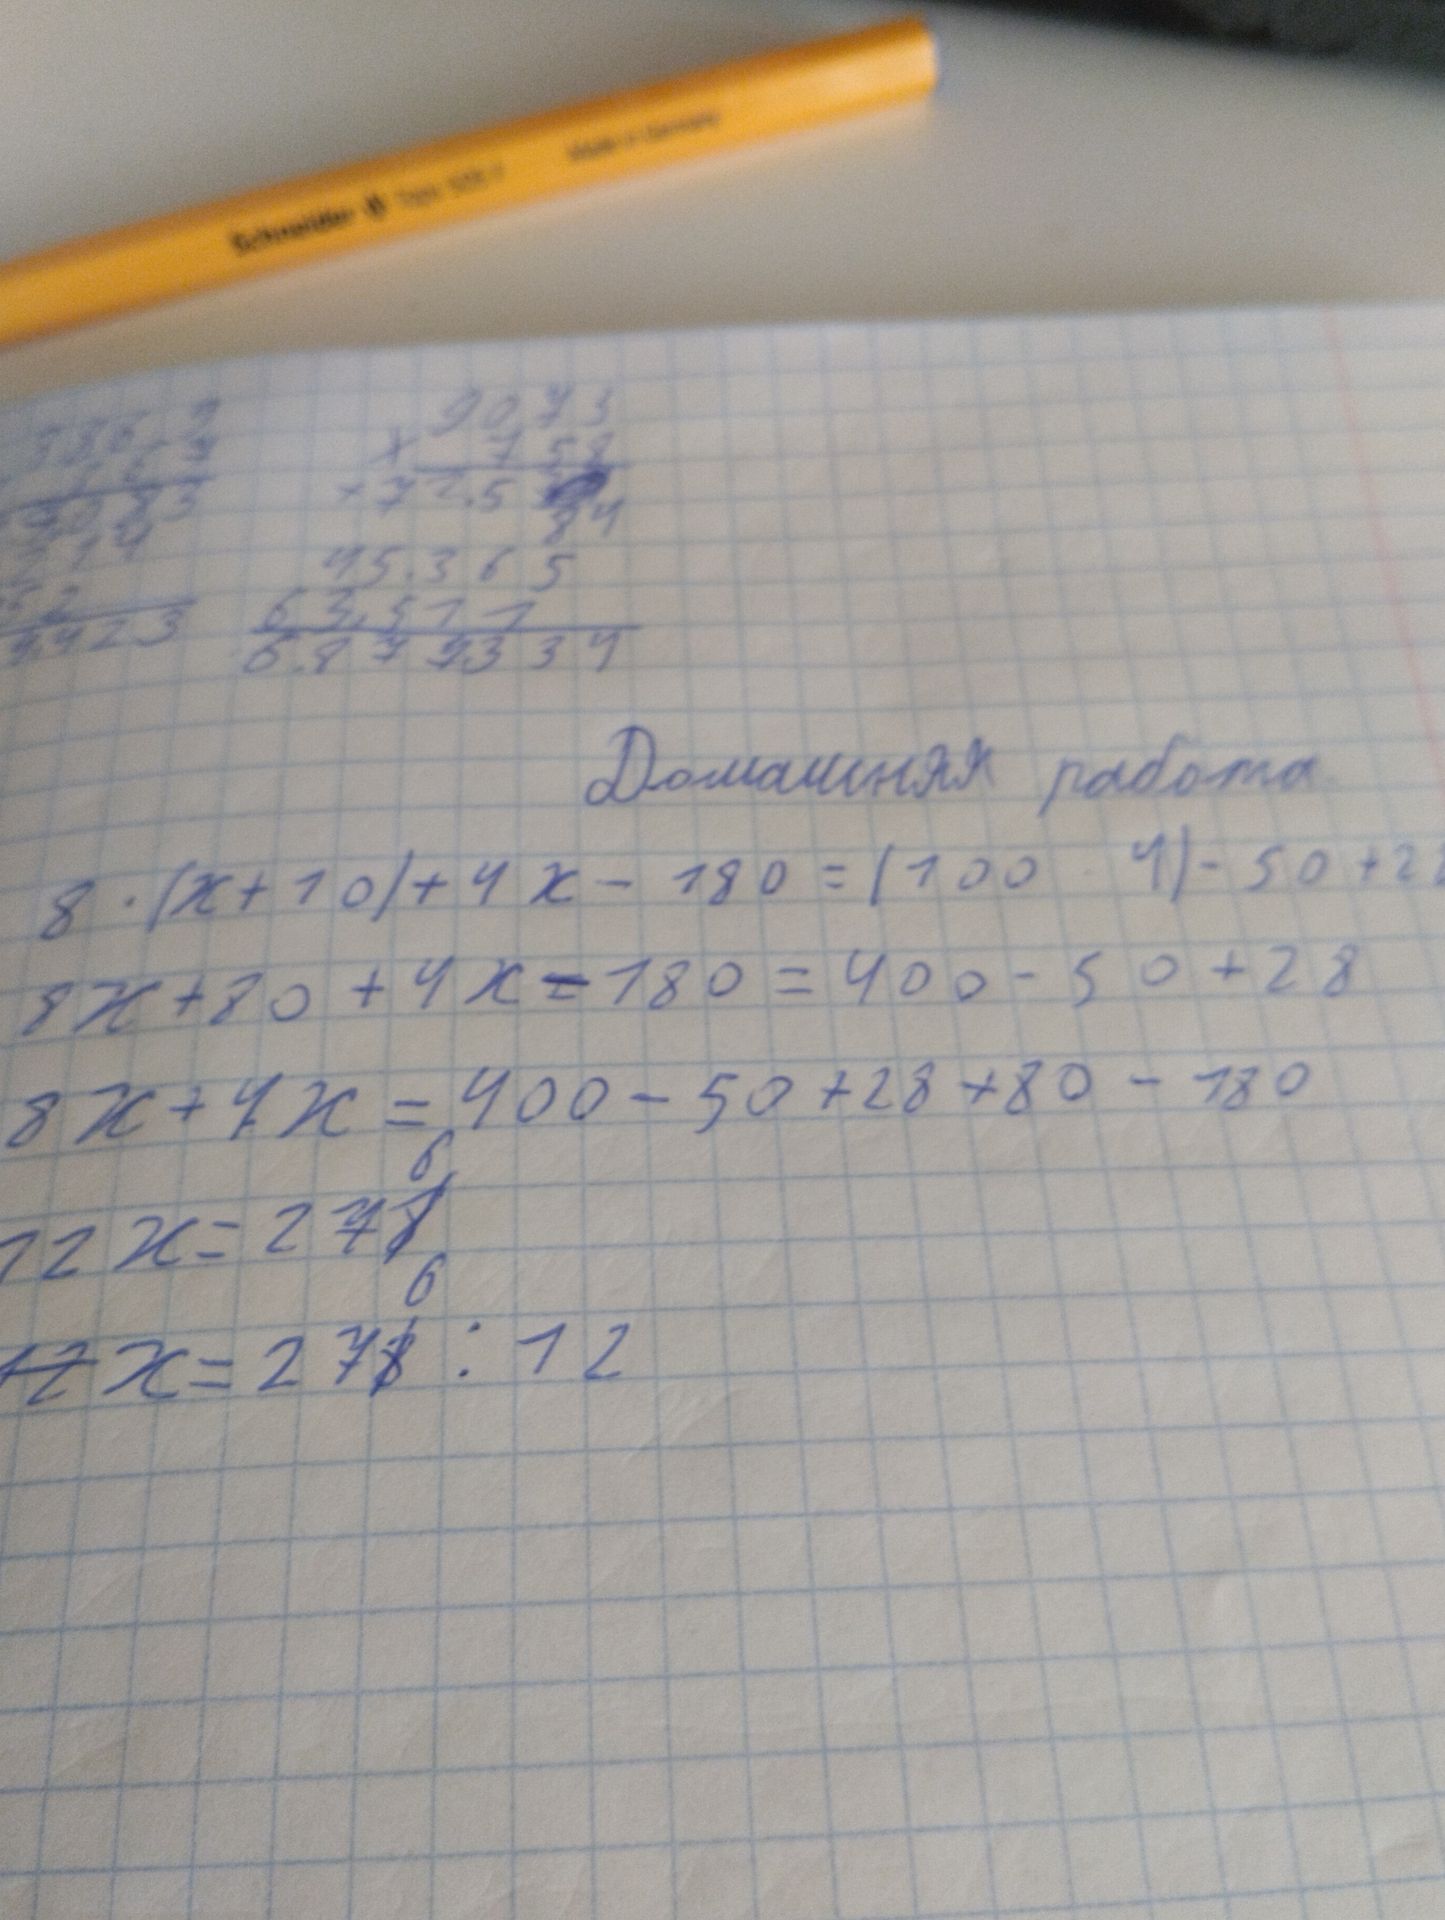 Schneider
Made in Germany
9073
x 758
+ 72.5
84
45.365
63.511
6.877334
Домашняя работа
8 · (x + 10) + 4x - 180 = (100 · 4) - 50 + 28
8x + 80 + 4x - 180 = 400 - 50 + 28
8x + 4x = 400 - 50 + 28 + 80 - 180
6
12x = 278
6
12x = 278 : 12